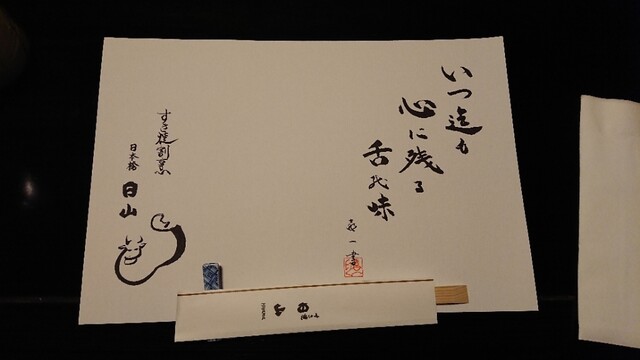 いつ迄も
心に残る
舌の味
すき焼割烹
日本橋
日山